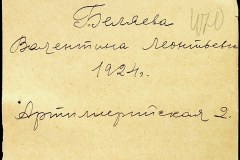 Г. Беляева
Валентина Леонтьевн
1924г.
Артиллерийская 2.